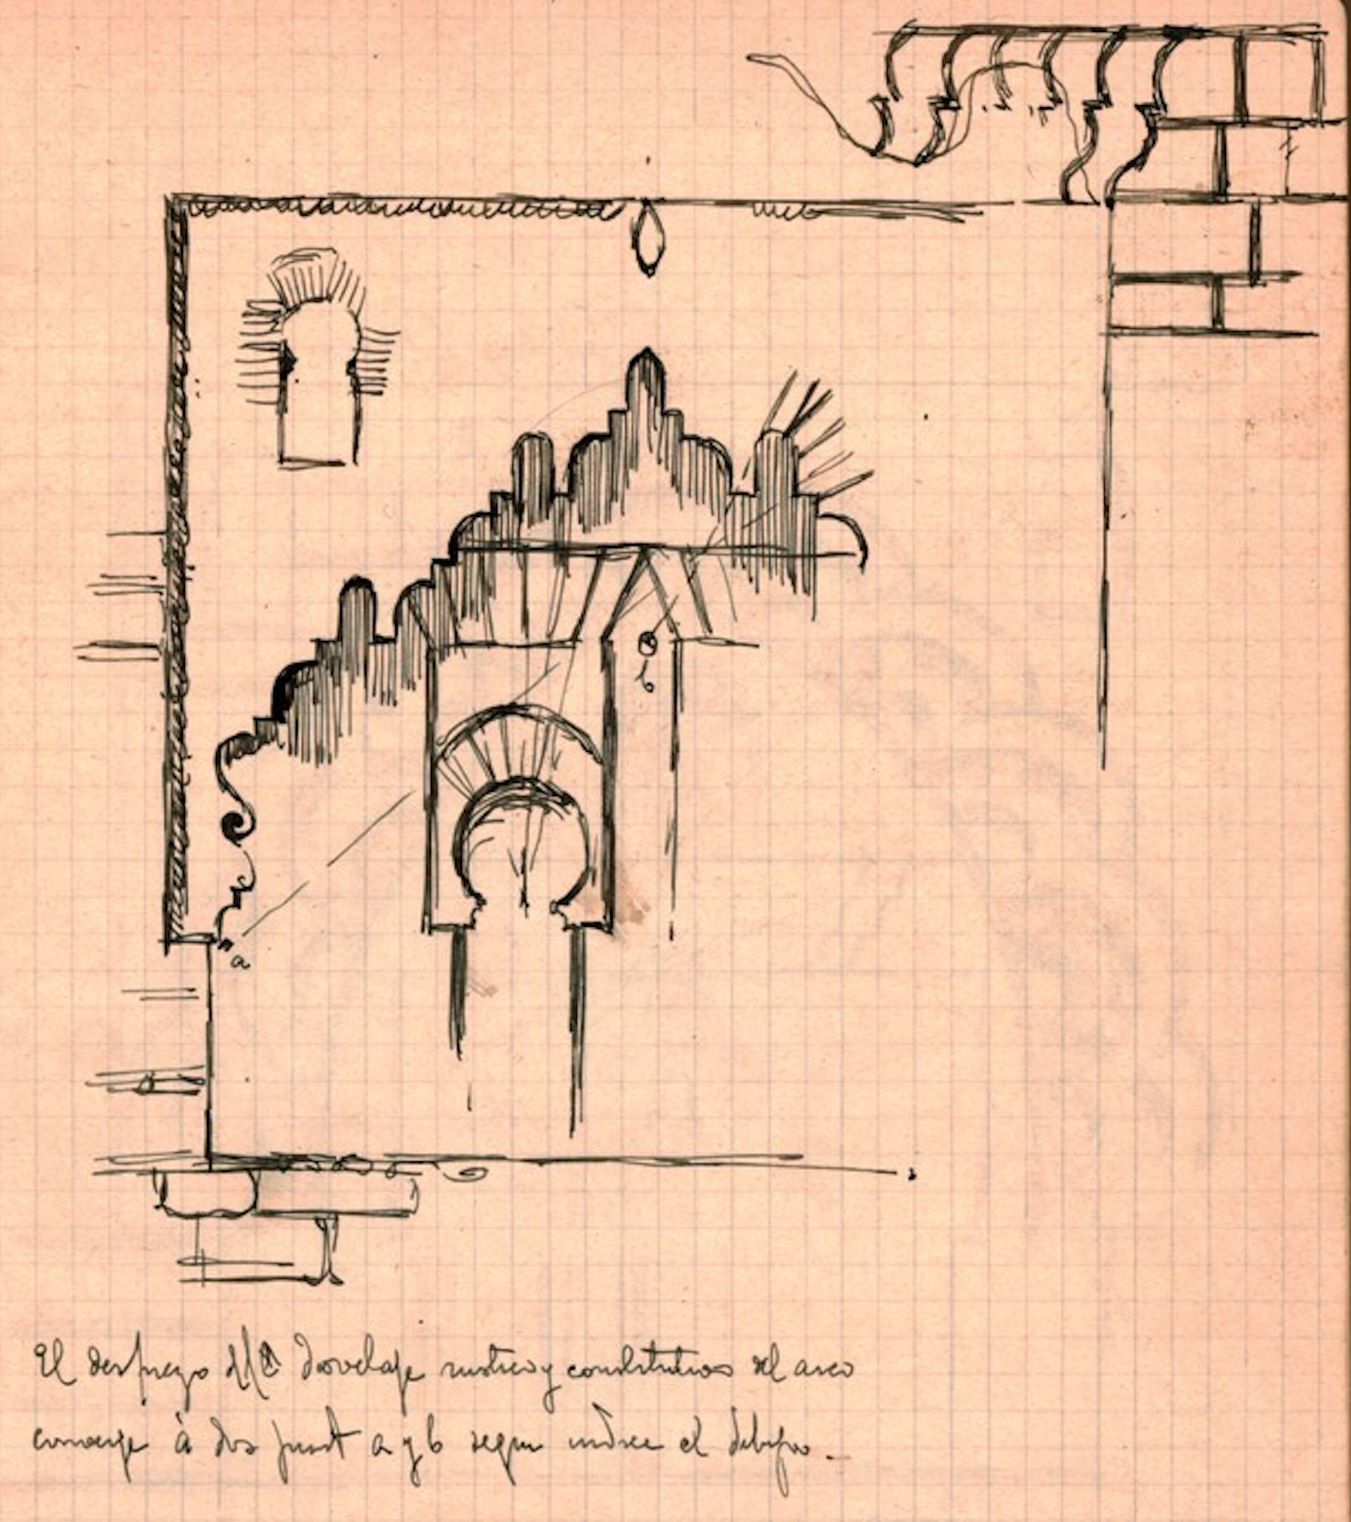 b
a
El despiezo del dovelaje rustico y constitutivo del arco
converje à dos punt a y b segun indica el dibujo.